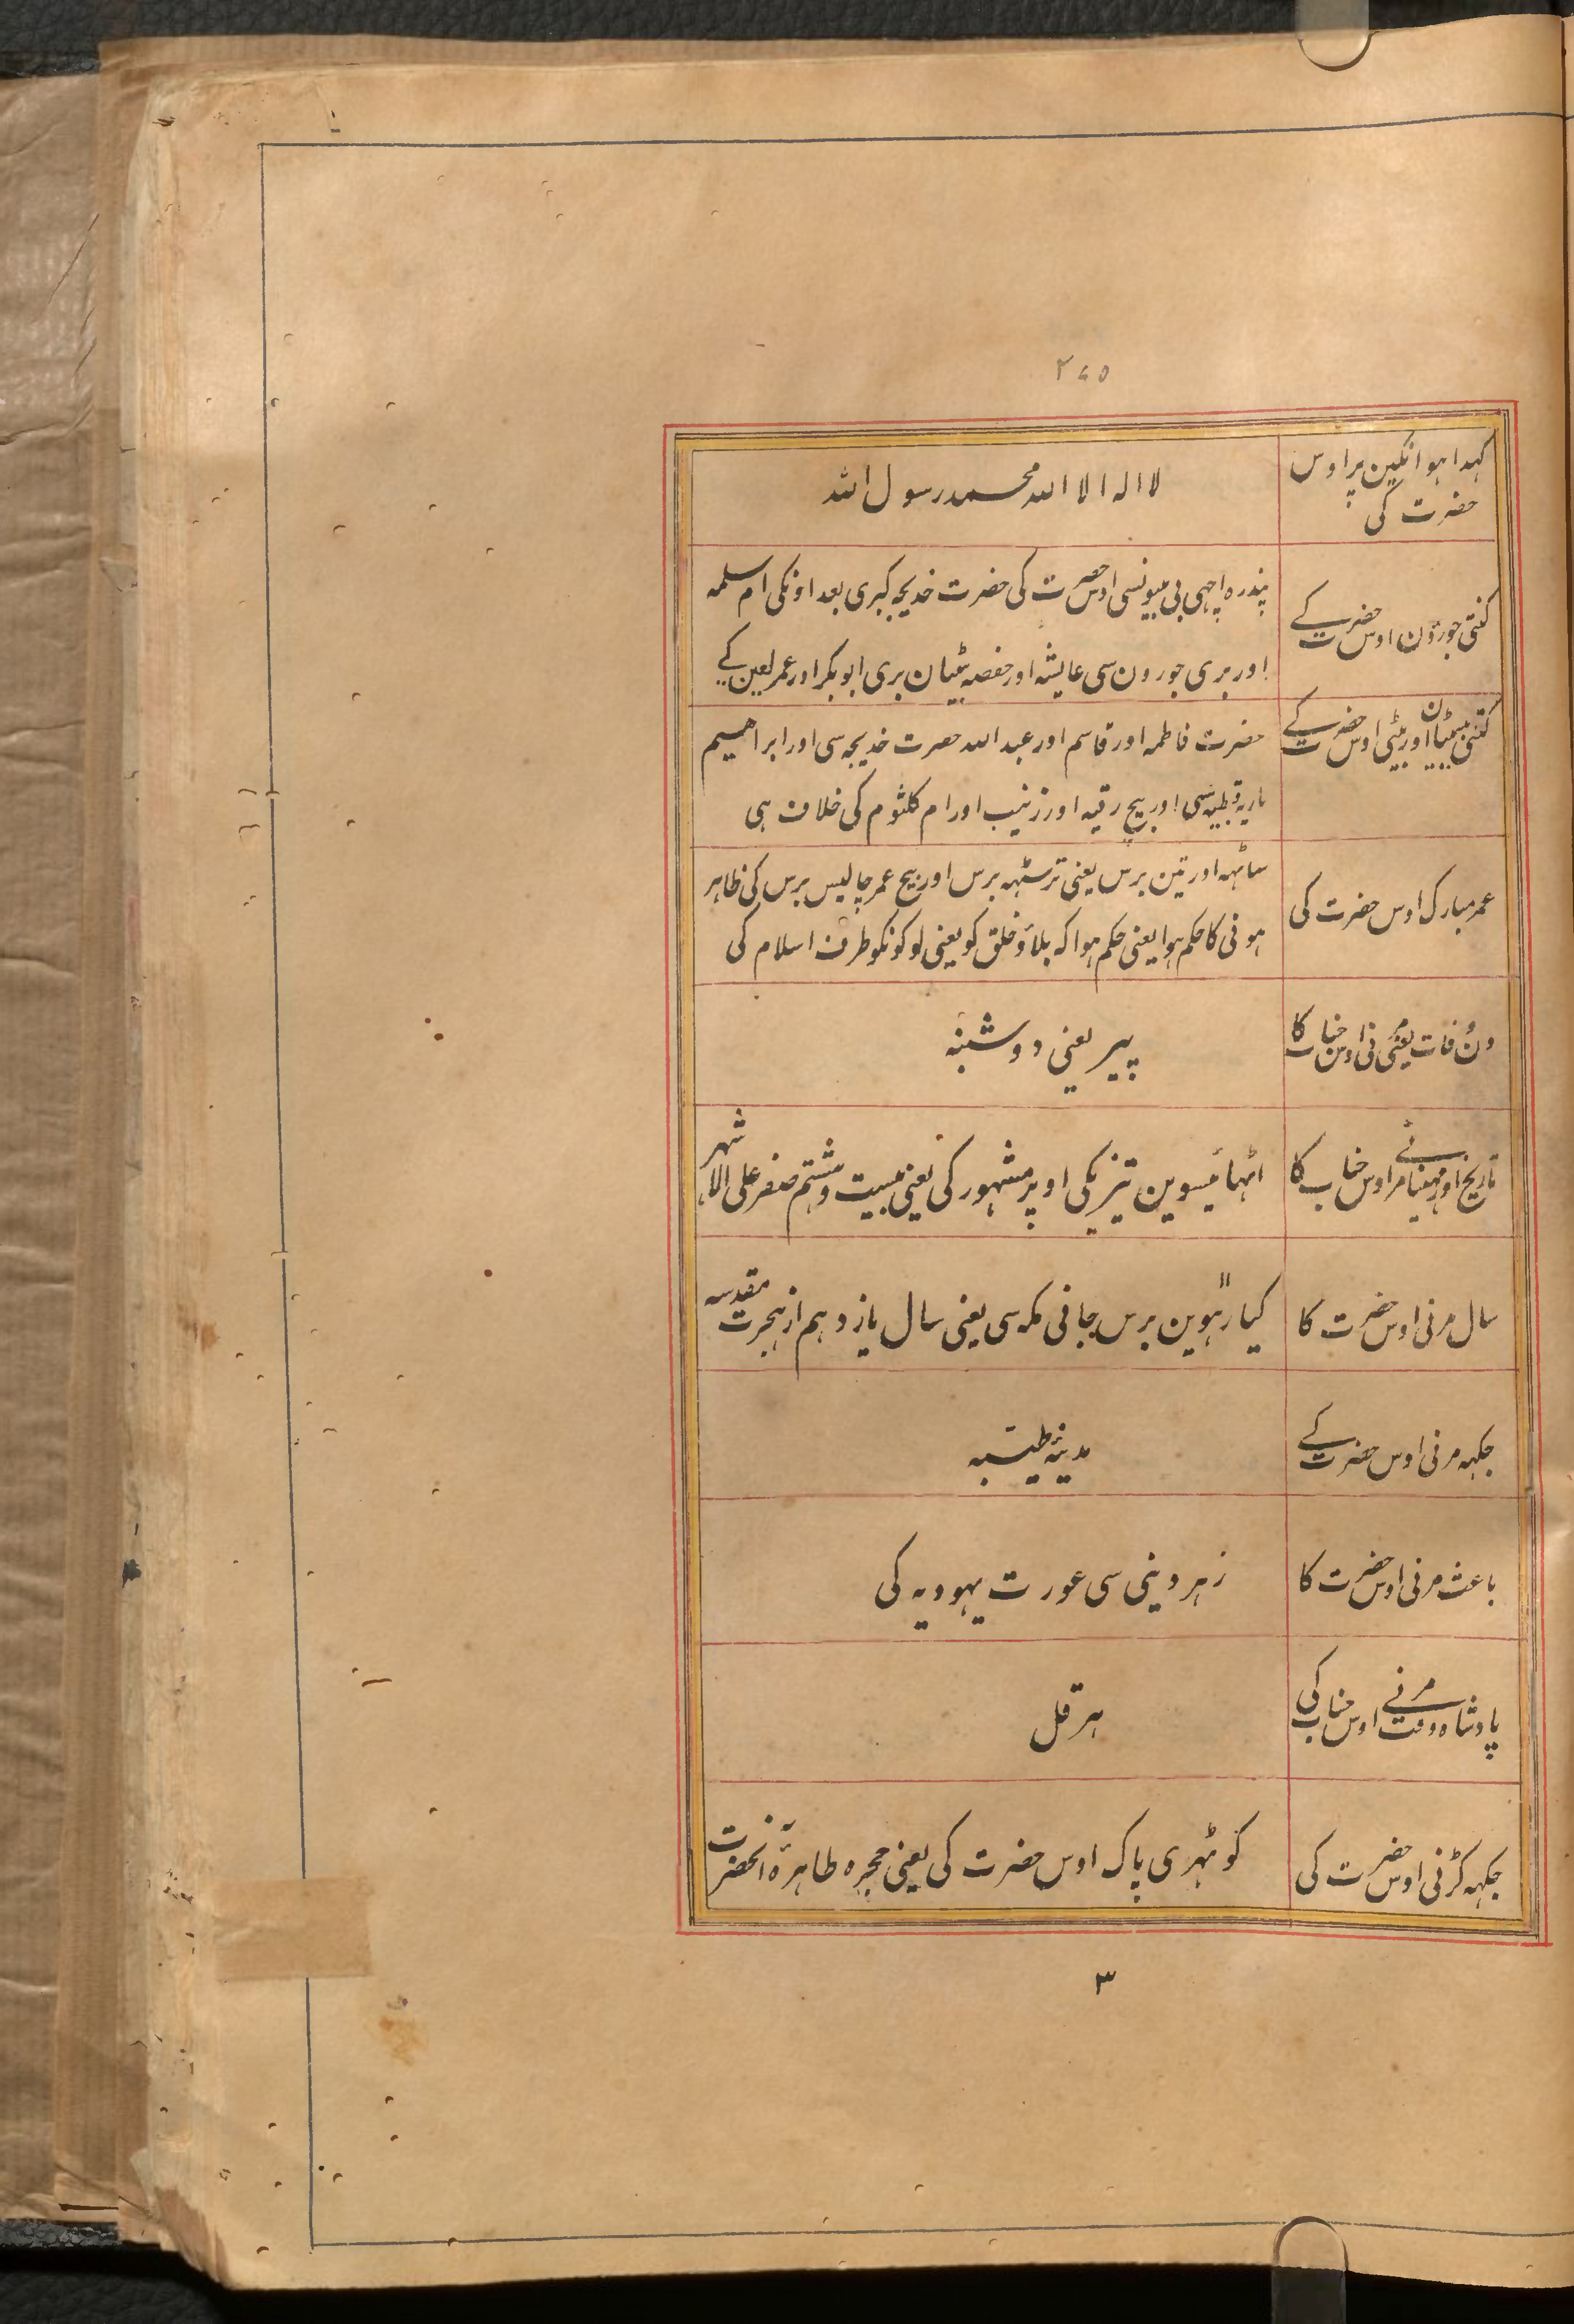 ۲۶۵
کہدا ہوا نگین پر اوس
حضرت کی
لا الہ الا اللہ محمد رسول اللہ
کنتی جورؤن اوس حضرت کے
پندرہ اچہی بی بیونسی اوس حضرت کی حضرت خدیجہ کبری بعد اونکی ام سلمہ
اور بری جورون سی عایشہ اور حفصہ بٹیان بری ابوبکر اور عمر لعین کے
کنتی بیٹیان اور بیٹی اوس حضرت کے
حضرت فاطمہ اور قاسم اور عبد اللہ حضرت خدیجہ سی اور ابراہیم
ماریہ قبطیہ سی اور بیچ رقیہ اور زینب اور ام کلثوم کی خلاف ہی
عمر مبارک اوس حضرت کی
ساٹہہ اور تین برس یعنی ترسٹہہ برس اور بیچ عمر چالیس برس کی ظاہر
ہونی کا حکم ہوا یعنی حکم ہوا کہ بلاؤ خلق کو یعنی لوکونکو طرف اسلام کی
دن وفات یعنی مرنی اوس جناب کا
پیر یعنی دوشنبہ
تاریخ اور مہینا مرنے اوس جناب کا
اٹہائیسوین تیزیکی اوپر مشہور کی یعنی بیست وہشتم صفر علی الاشہر
سال مرنی اوس حضرت کا
کیارہوین برس جانی مکہ سی یعنی سال یازدہم از ہجرت مقدسہ
جکہہ مرنی اوس حضرت کے
مدینہ طیبہ
باعث مرنی اوس حضرت کا
زہر دینی سی عورت یہودیہ کی
پادشاہ وقت مرنے اوس جناب کی
ہرقل
جکہہ کڑنی اوس حضرت کی
کوٹہری پاک اوس حضرت کی یعنی حجرہ طاہرہ آنحضرت
۳